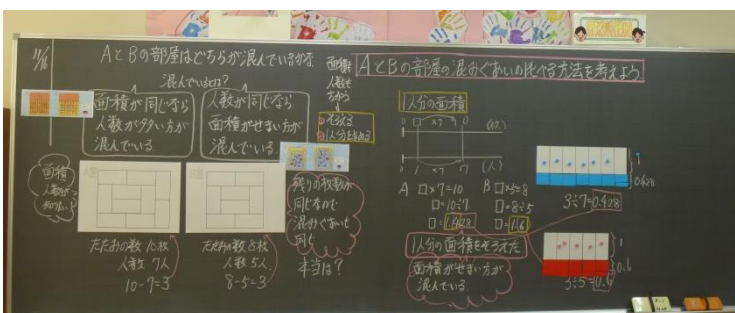 11/16
AとBの部屋はどちらが混んでいるかな
混んでいるとは?
面積が同じなら
人数が多い方が
混んでいる
人数が同じなら
面積がせまい方が
混んでいる
面積も
人数も
ちがう
そろえる
面積
人数が
たたみの数 10枚
人数 7人
10-7=3
たたみの数 8枚
人数 5人
8-5=3
残りの枚数が
同じなので
混みぐあいも
同じ
本当は?
AとBの部屋の混みぐあいの比べる方法を考えよう
1人分の面積
0 □ ×7 10 (枚)
0 1 ×7 7 (人)
A □×7=10
□=10÷7
□=1.428
B □×5=8
□=8÷5
□=1.6
1人分の面積をそろえた
面積がせまい方が
混んでいる
1
0.428
3÷7=0.428
1
0.6
3÷5=0.6